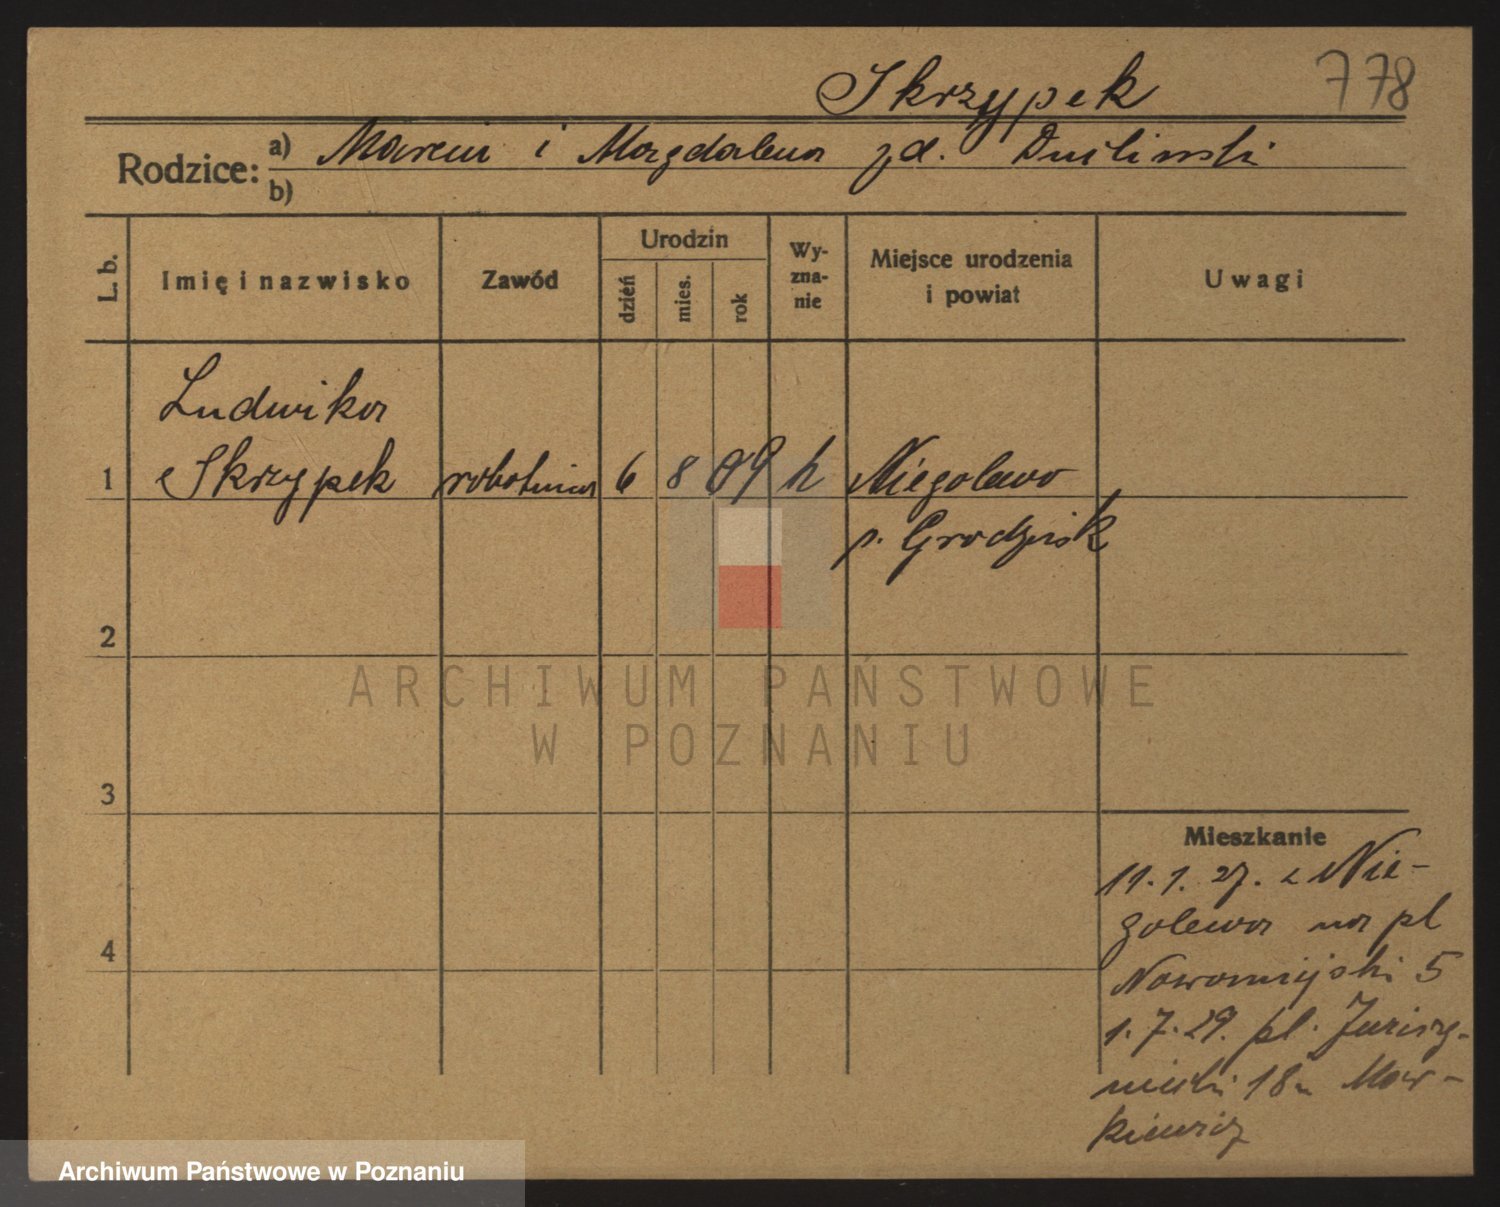 778
Skrzypek
Rodzice: a) Marcin i Magdalena zd.
b)
L. b.
Imię i nazwisko
Zawód
Urodzin
dzień
mies.
rok
Wy-
zna-
nie
Miejsce urodzenia
i powiat
Uwagi
Ludwika
1 Skrzypek robotnica 6 8 09 k Niegolewo
p. Grodzisk
2
3
4
Mieszkanie
11.1.27. z Nie-
golewa na pl
Nowomiejski 5
1.7.29. pl.
18
ARCHIWUM PAŃSTWOWE
W POZNANIU
Archiwum Państwowe w Poznaniu